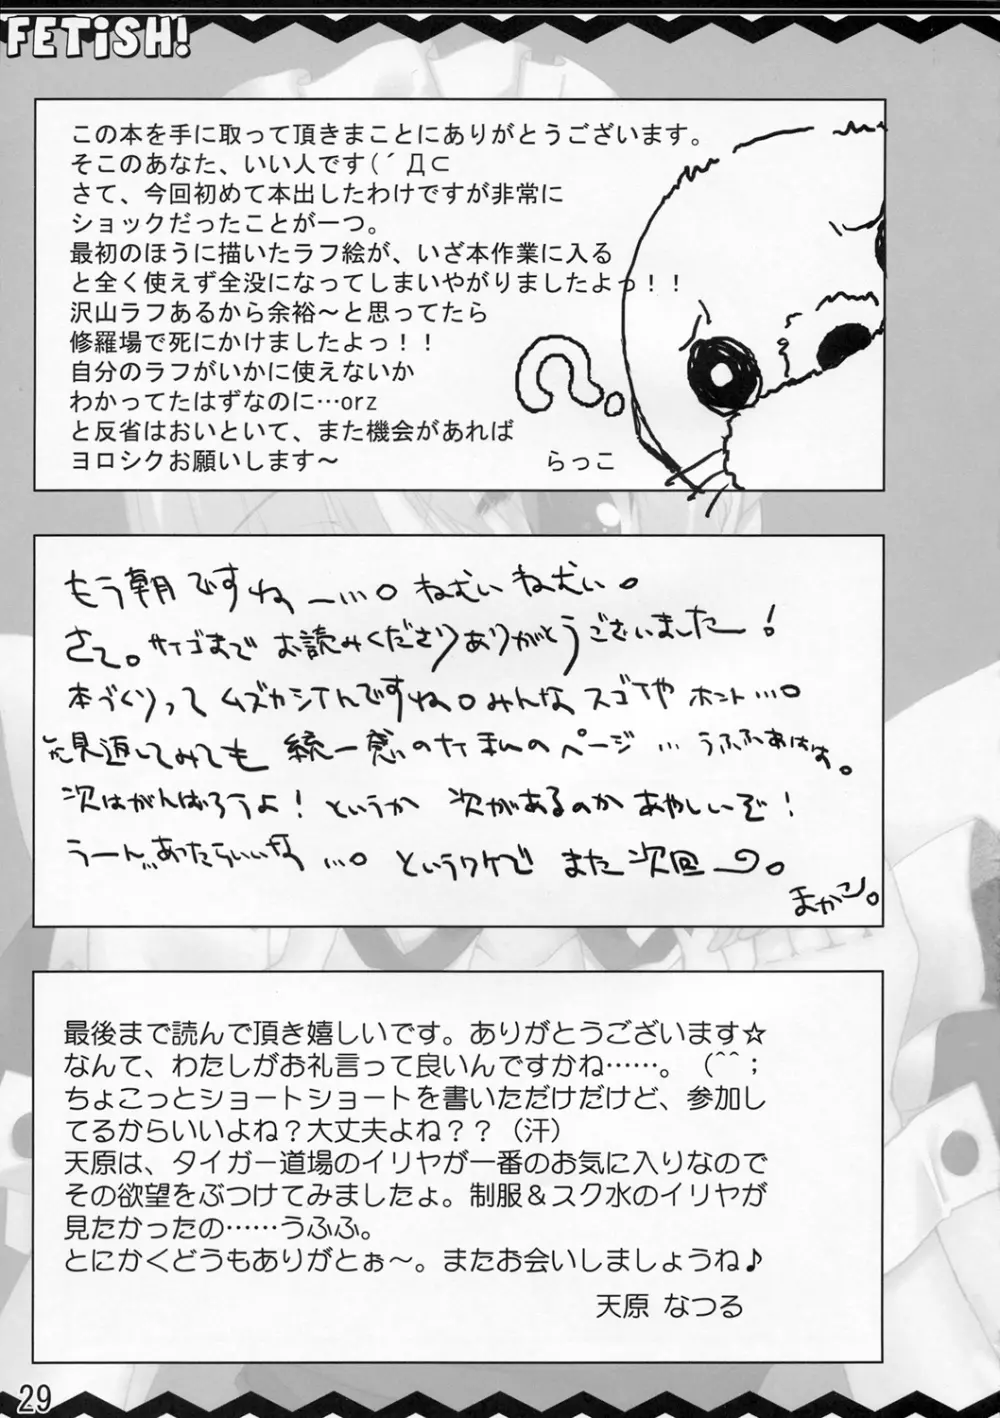 FETiSH!
この本を手に取って頂きまことにありがとうございます。
そこのあなた、いい人です(´Д⊂
さて、今回初めて本出したわけですが非常に
ショックだったことが一つ。
最初のほうに描いたラフ絵が、いざ本作業に入る
と全く使えず全没になってしまいやがりましたよっ!!
沢山ラフあるから余裕～と思ってたら
修羅場で死にかけましたよっ!!
自分のラフがいかに使えないか
わかってたはずなのに…orz
と反省はおいといて、また機会があれば
ヨロシクお願いします～ らっこ
もう朝ですねー…。ねむいねむい。
さて。サイゴまでお読みくださりありがとうございましたー!
本づくりってムズカシイんですね。みんなスゴイや ホント…。
見返してみても 統一感のナイまんのページ…うふふあはは。
次はがんばろうよ! というか 次があるのかあやしいぞ!
うーん…あったらいいな…。というワケで また次回。
まかこ。
最後まで読んで頂き嬉しいです。ありがとうございます☆
なんて、わたしがお礼言って良いんですかね……。（^^;
ちょこっとショートショートを書いただけだけど、参加し
てるからいいよね？大丈夫よね？？（汗）
天原は、タイガー道場のイリヤが一番のお気に入りなので
その欲望をぶつけてみましたよ。制服＆スク水のイリヤが
見たかったの……うふふ。
とにかくどうもありがとぉ～。またお会いしましょうね♪
天原 なつる
29